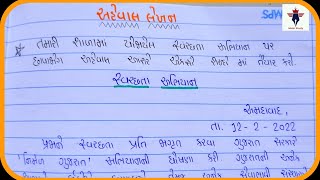 અહેવાલ લેખન
* તમારી શાળામાં યોજાયેલ સ્વચ્છતા અભિયાન પર
અહેવાલ આશરે એકસો શબ્દ માં તૈયાર કરો.
સ્વચ્છતા અભિયાન
અમદાવાદ,
તા. 12-2-2022
પ્રજાને સ્વચ્છતા પ્રતિ જાગૃત કરવા ગુજરાત સરકારે
'નિર્મળ ગુજરાત' અભિયાનની ઘોષણા કરી ગુજરાતની